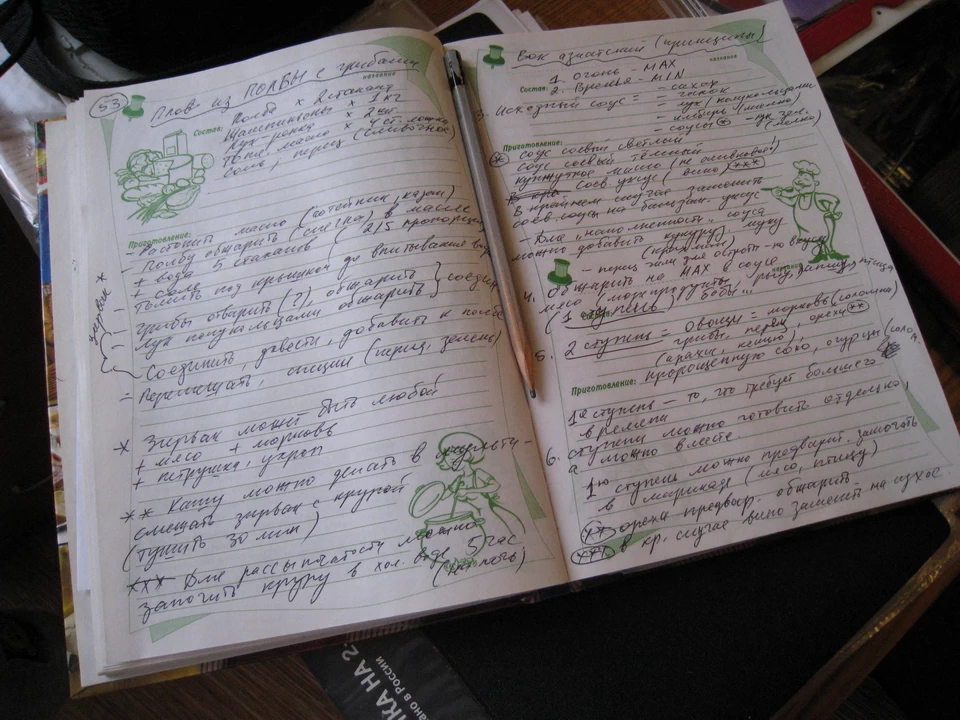 53
Плов из ПОЛБЫ с грибами
название
Состав:
Полба × 2 стакана
Шампиньоны × 1 кг
Лук-репка × 2 шт
Топл. масло × ст. ложка
соль, перец (сливочное)
Приготовление:
- Растопить масло (сотейник, казан)
- Полбу обжарить (слегка) в масле
+ вода 5 стаканов (2/5 пропорция)
+ соль
- Томить под крышкой до впитывания воды
зирвак *
- грибы отварить (?), обжарить } соедин
- Лук полукольцами обжарить
- Соединить, довести, добавить к полбе
- Перемешать, специи (перец, зелень)
* Зирвак может быть любой
+ мясо + морковь
+ петрушка, укроп
** Кашу можно делать в
смешать зирвак с крупой
(тушить 30 мин)
*** Для рассыпчатости можно
замочить крупу в хол. воде 5 час
(на ночь)
Вок азиатский (принципы)
название
1. Огонь - MAX
Состав:
2. Время - MIN
3. Исходный соус = - сахар
- чеснок
- лук (полукольцами)
- имбирь (мелко)
- соусы *
Приготовление:
* Соус соевый светлый
Соус соевый тёмный
кунжутное масло (не оливковое!)
соев уксус (вино) ***
В крайнем случае заменить
соев соусы на бальзам. уксус
- Для "наполненности" соуса
можно добавить кукуруз. муку
(крахмал)
- перец чили для остроты - по вкусу
название
4. Обжарить на MAX в соусе
мясо, морепродукты, рыбу, птица
(1 ступень) бобы...
5. 2 ступень = овощи = морковь (соломка)
грибы, перец, орехи **
(арахис, кешью),
пророщенную сою, огурцы
Приготовление:
1я ступень - то, что требует большего
времени
6. ступени можно готовить отдельно,
а можно вместе
1ю ступень можно предварит. замочить
в маринаде (мясо, птицу)
** орехи предвар. обжарить
*** в кр. случае вино заменить на уксус
КА НА 2
ано в России